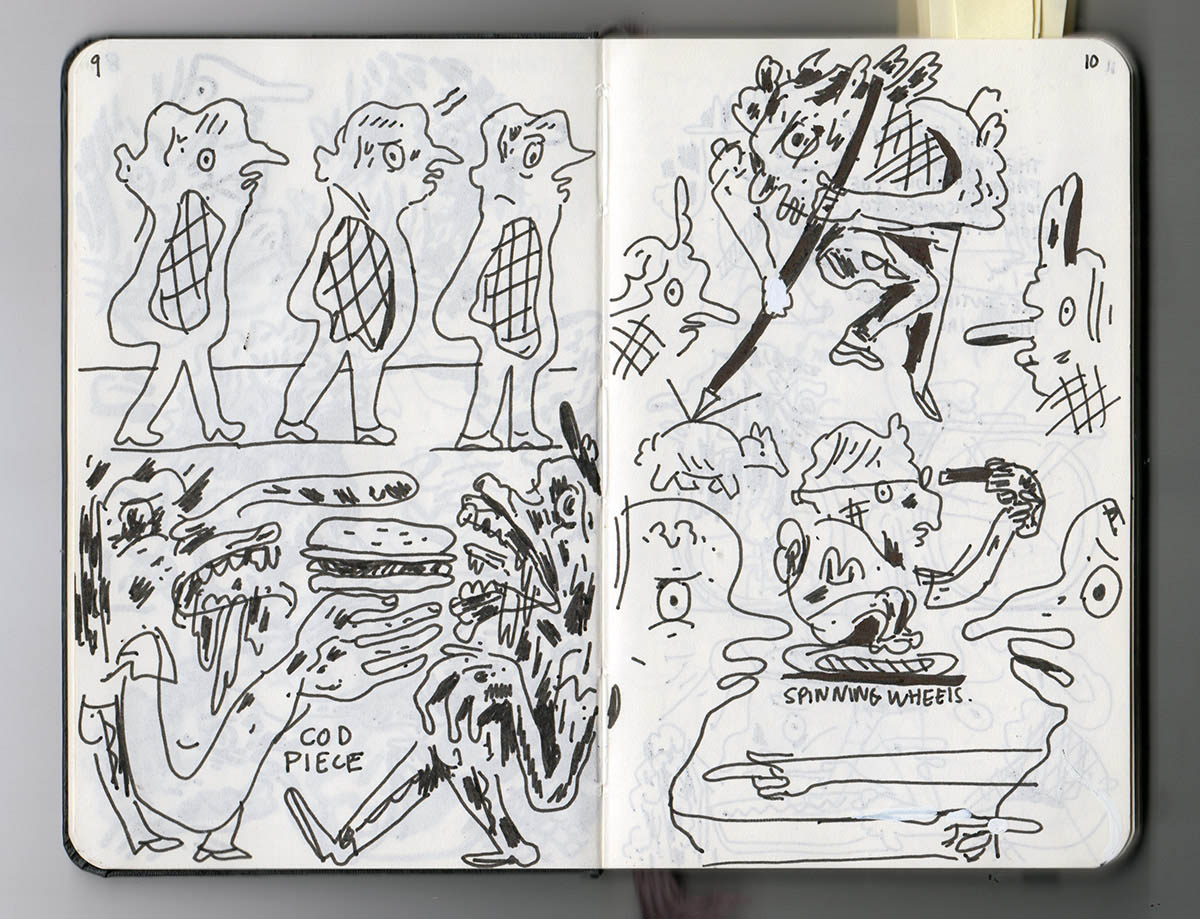 9
10
COD
PIECE
SPINNING WHEELS.